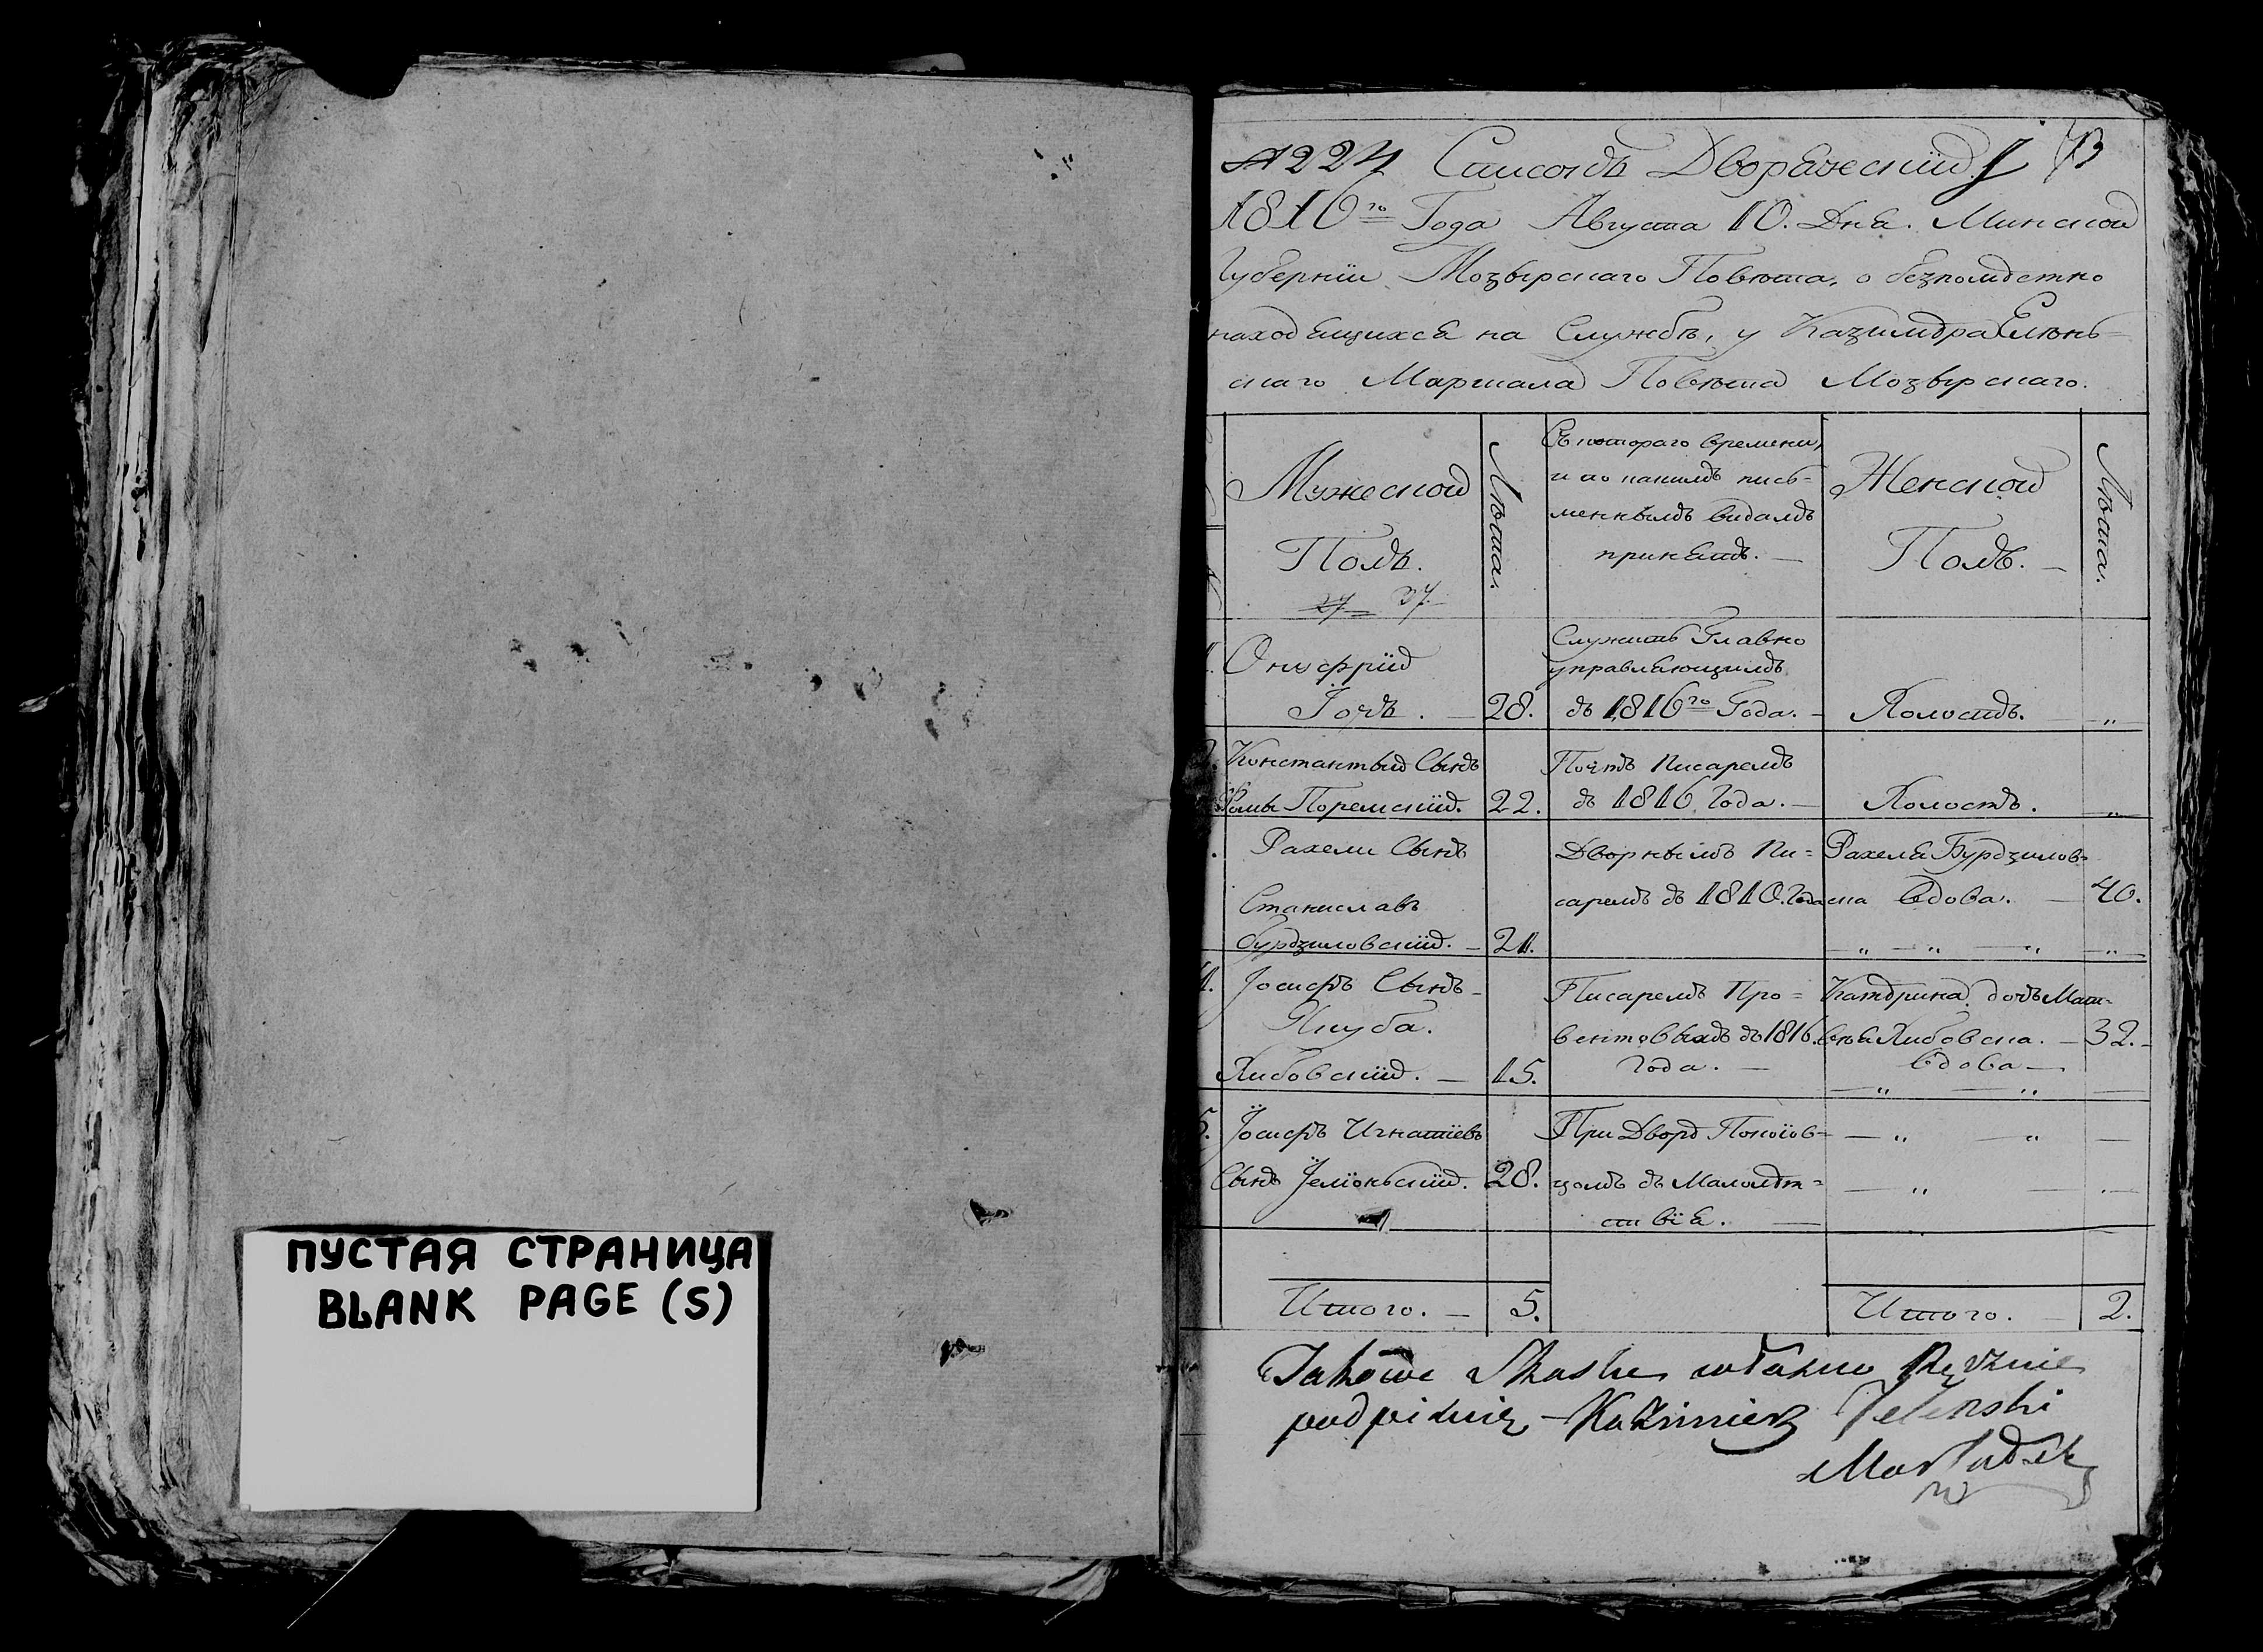 ПУСТАЯ СТРАНИЦА
BLANK PAGE (S)
№ 224 Списокъ Дворянский 73
1816го Года Августа 10. Дня. Минской
Губернии Мозырскаго Повѣта, о безпомѣстно
находящихся на Службѣ, у Казимѣра Еленъ-
скаго Маршала Повѣта Мозырскаго.
Мужеской
Полъ.
27 37.
Лѣта.
Съ котораго времени,
и по какимъ пись-
меннымъ видамъ
принятъ. —
Женской
Полъ. —
Лѣта.
1. Онуфрій
Гочъ. — 28.
Служитъ Главно
управляющимъ
съ 1816го Года. —
Холостъ. — „
Константый Сынъ
Фомы Поремский. 22.
Почтъ Писаремъ
съ 1816 Года. —
Холостъ. „
Рахели Сынъ
Станиславъ
Бурдзиловский. — 21.
Дворнымъ Пи-
саремъ съ 1810. Года
Рахеля Бурдзиловъ-
ска вдова. — 40.
4. Іосифъ Сынъ
Якуба.
Якбовский. — 15.
Писаремъ Про-
вентовыхъ съ 1816.
Года. —
Катѣрина дочь Мат-
вѣя Якбовска. — 32. —
вдова —
5. Іосифъ Игнатіевъ
Сынъ Јеліоньский. 28.
При Дворѣ Покоіов-
цомъ съ Малолѣт-
ствія. —
Итого. — 5.
Итого. — 2.
Takowe Skaske własno Ręcznie
podpisuię — Kazimierz Jelenski
Marszałek